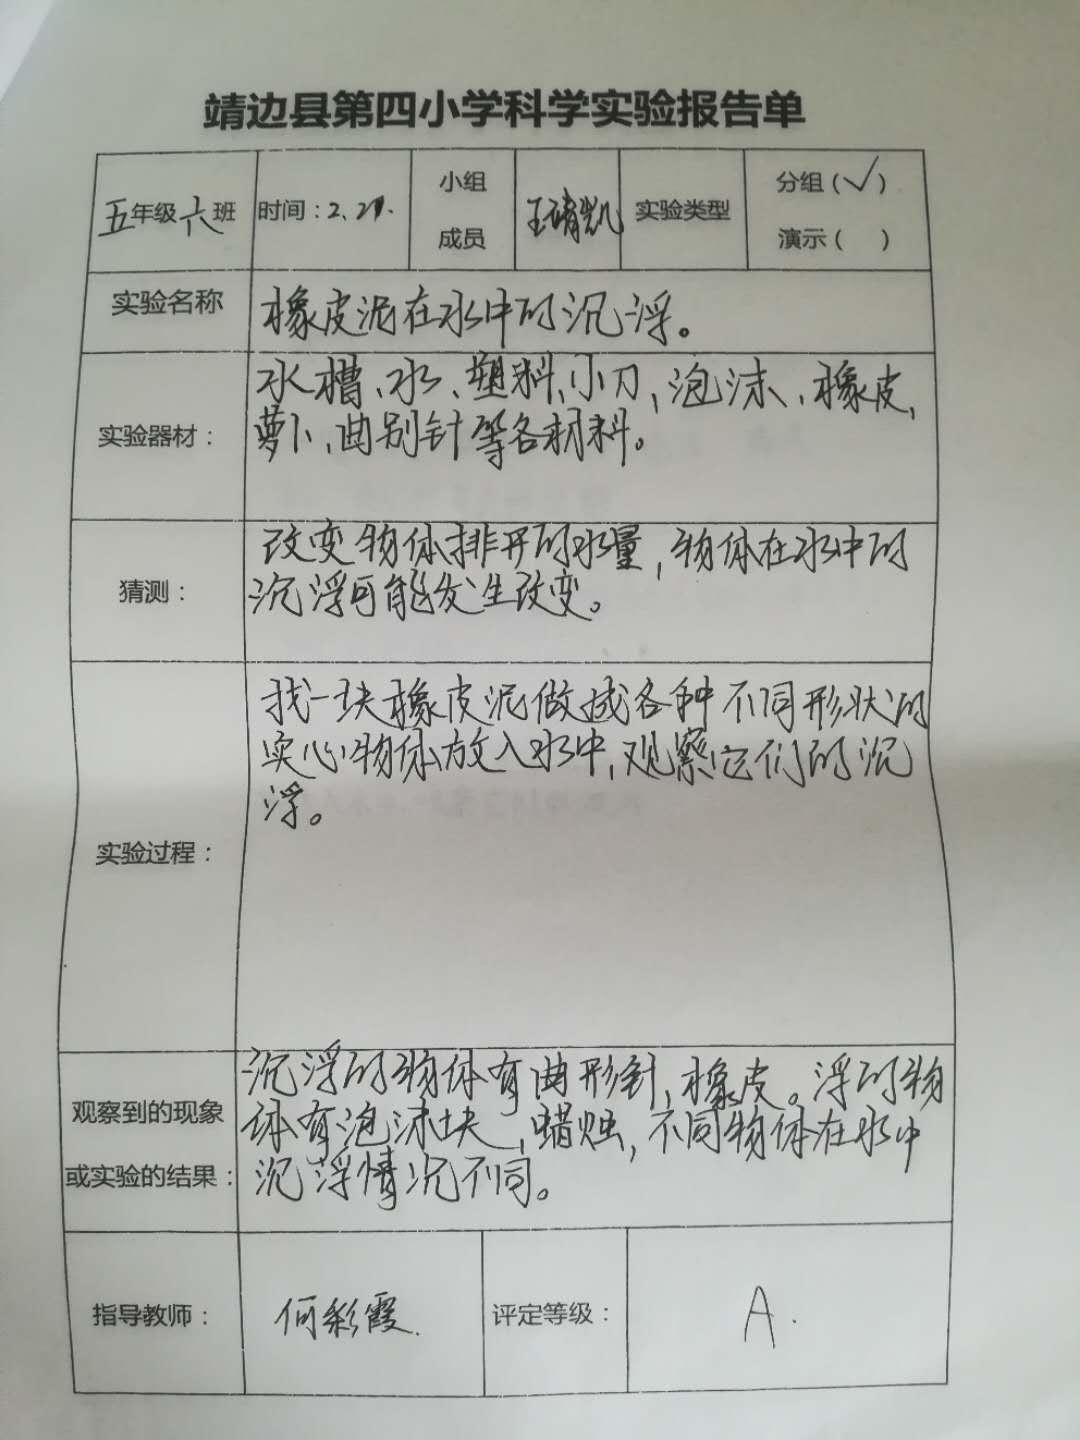 靖边县第四小学科学实验报告单
五年级六班 时间：2、21. 小组成员 王靖凯 实验类型 分组（√） 演示（ ）
实验名称 橡皮泥在水中的沉浮。
实验器材： 水槽、水、塑料、小刀、泡沫、橡皮、
萝卜、曲别针等各材料。
猜测： 改变物体排开的水量，物体在水中的
沉浮可能发生改变。
找一块橡皮泥做成各种不同形状的
实心物体放入水中，观察它们的沉
浮。
实验过程：
沉浮的物体有曲形针，橡皮。浮的物
观察到的现象 体有泡沫块，蜡烛，不同物体在水中
或实验的结果： 沉浮情况不同。
指导教师： 何彩霞. 评定等级： A.